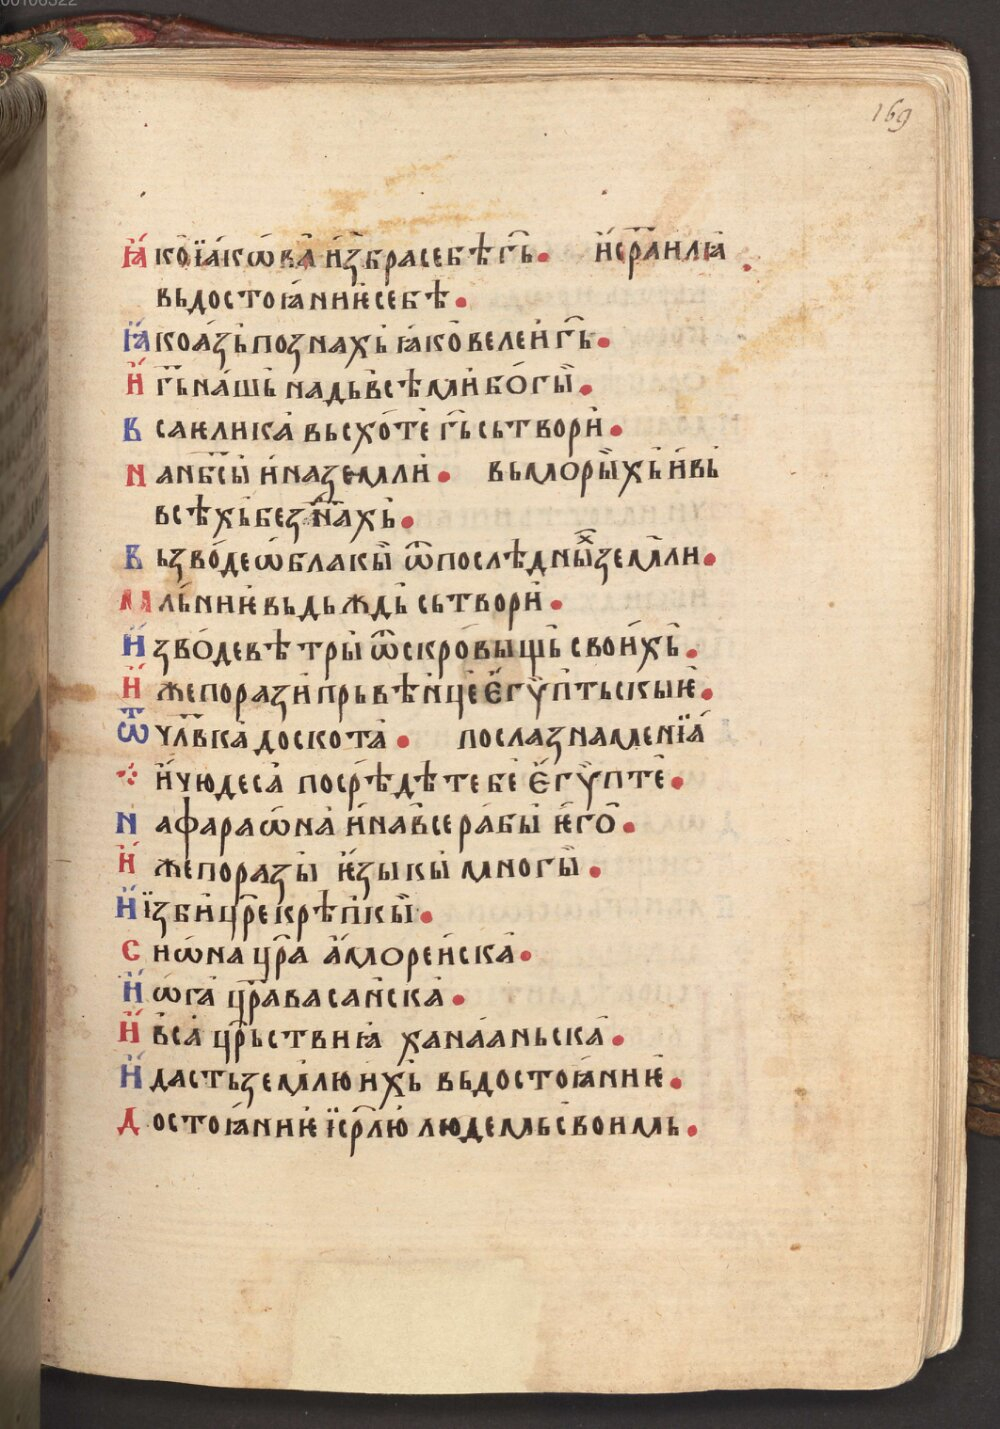 00106322
169
Ꙗ҆ко їа҆кѡва и҆збра себѣ гь҃. и҆сраи҃лꙗ
вь достоꙗ҆ниѥ себѣ.
Ꙗ҆ко азь познахь ꙗко велеи гь҃.
И҆ гь҃ нашь надь всѣми богы.
Вса ѥлика вьсхоте гь҃ сьтвори.
На нб҃сы и на земли. вь морыхь и вь
всѣхь безⷣнахь.
Вьзводе ѡблакы ѿ послѣдныⷯ земли.
Мльниѥ вь дьждь сьтвори.
И҆зводе вѣтры ѿ скровыщь своихь.
И҆же порази прьвѣнце єгѵптьскыѥ.
Ѿ чл҃вка до скота. посла знаменїа
и чюдеса посрѣдѣ тебе єгѵпте.
На фараѡна и на все рабы ѥго.
И҆же поразы ѥзыкы многы.
И҆ їзби цр҃е крѣпкы.
Сиѡна цр҃а аморейска.
И҆ ѡга цр҃а васанска.
И҆ вса цр҃ьствиꙗ ханааньска.
И҆ дасть землю ихь вь достоꙗниѥ.
Достоꙗниѥ їср҃лю людемь своимь.